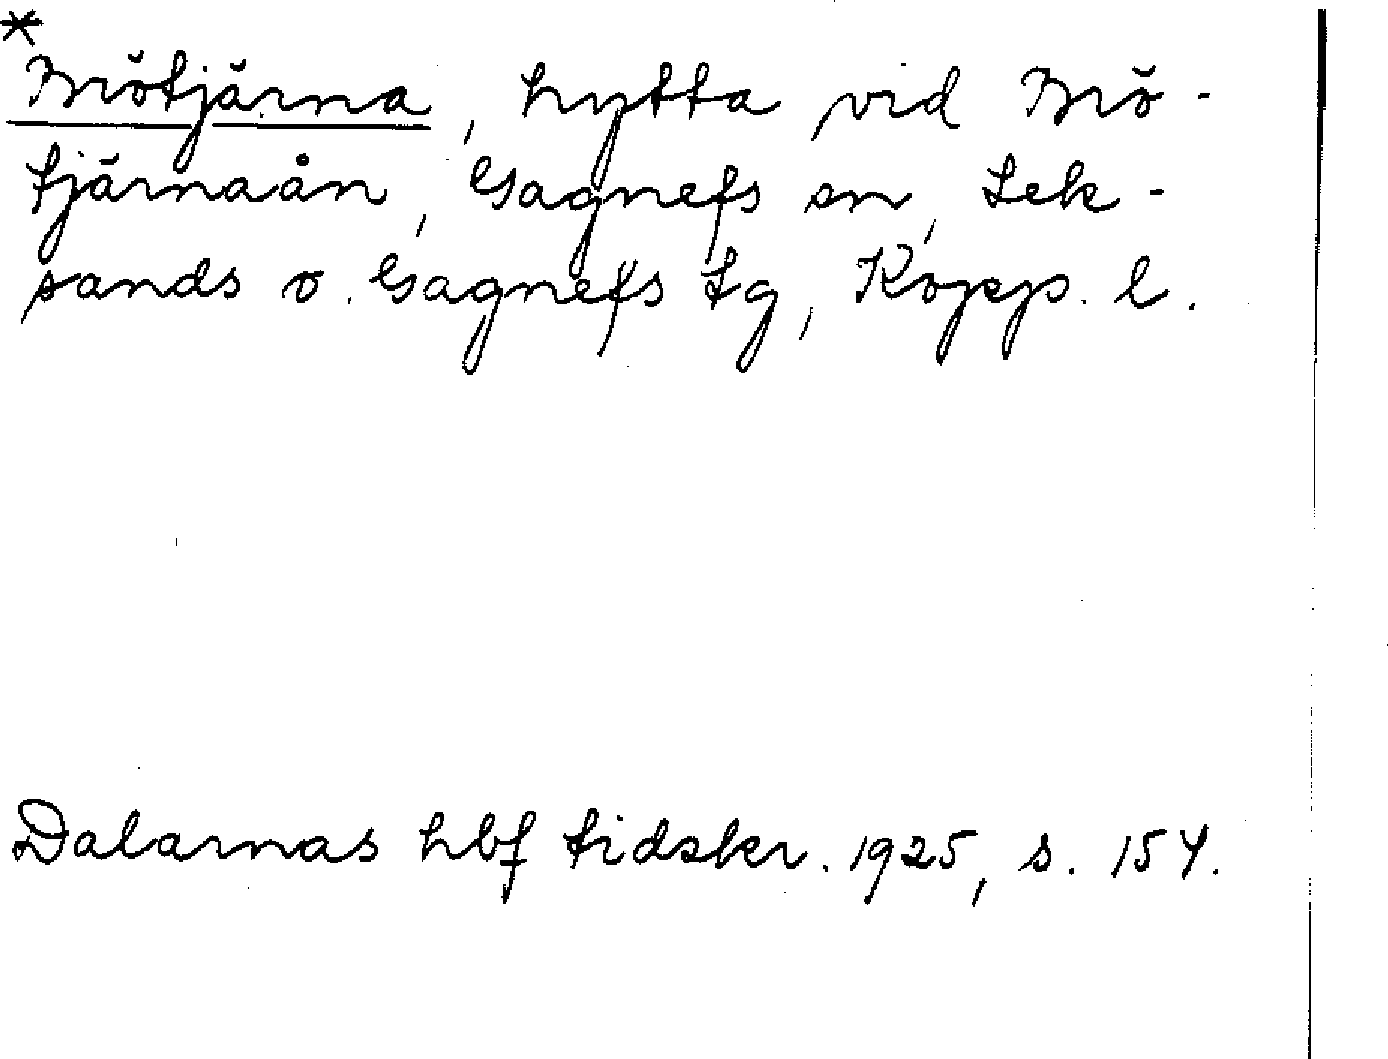 *
Brötjärna, hytta vid Brö-
tjärnaån, Gagnefs sn, Lek-
sands o. Gagnefs tg, Kopp. l.
Dalarnas hbf tidskr. 1925, s. 154.